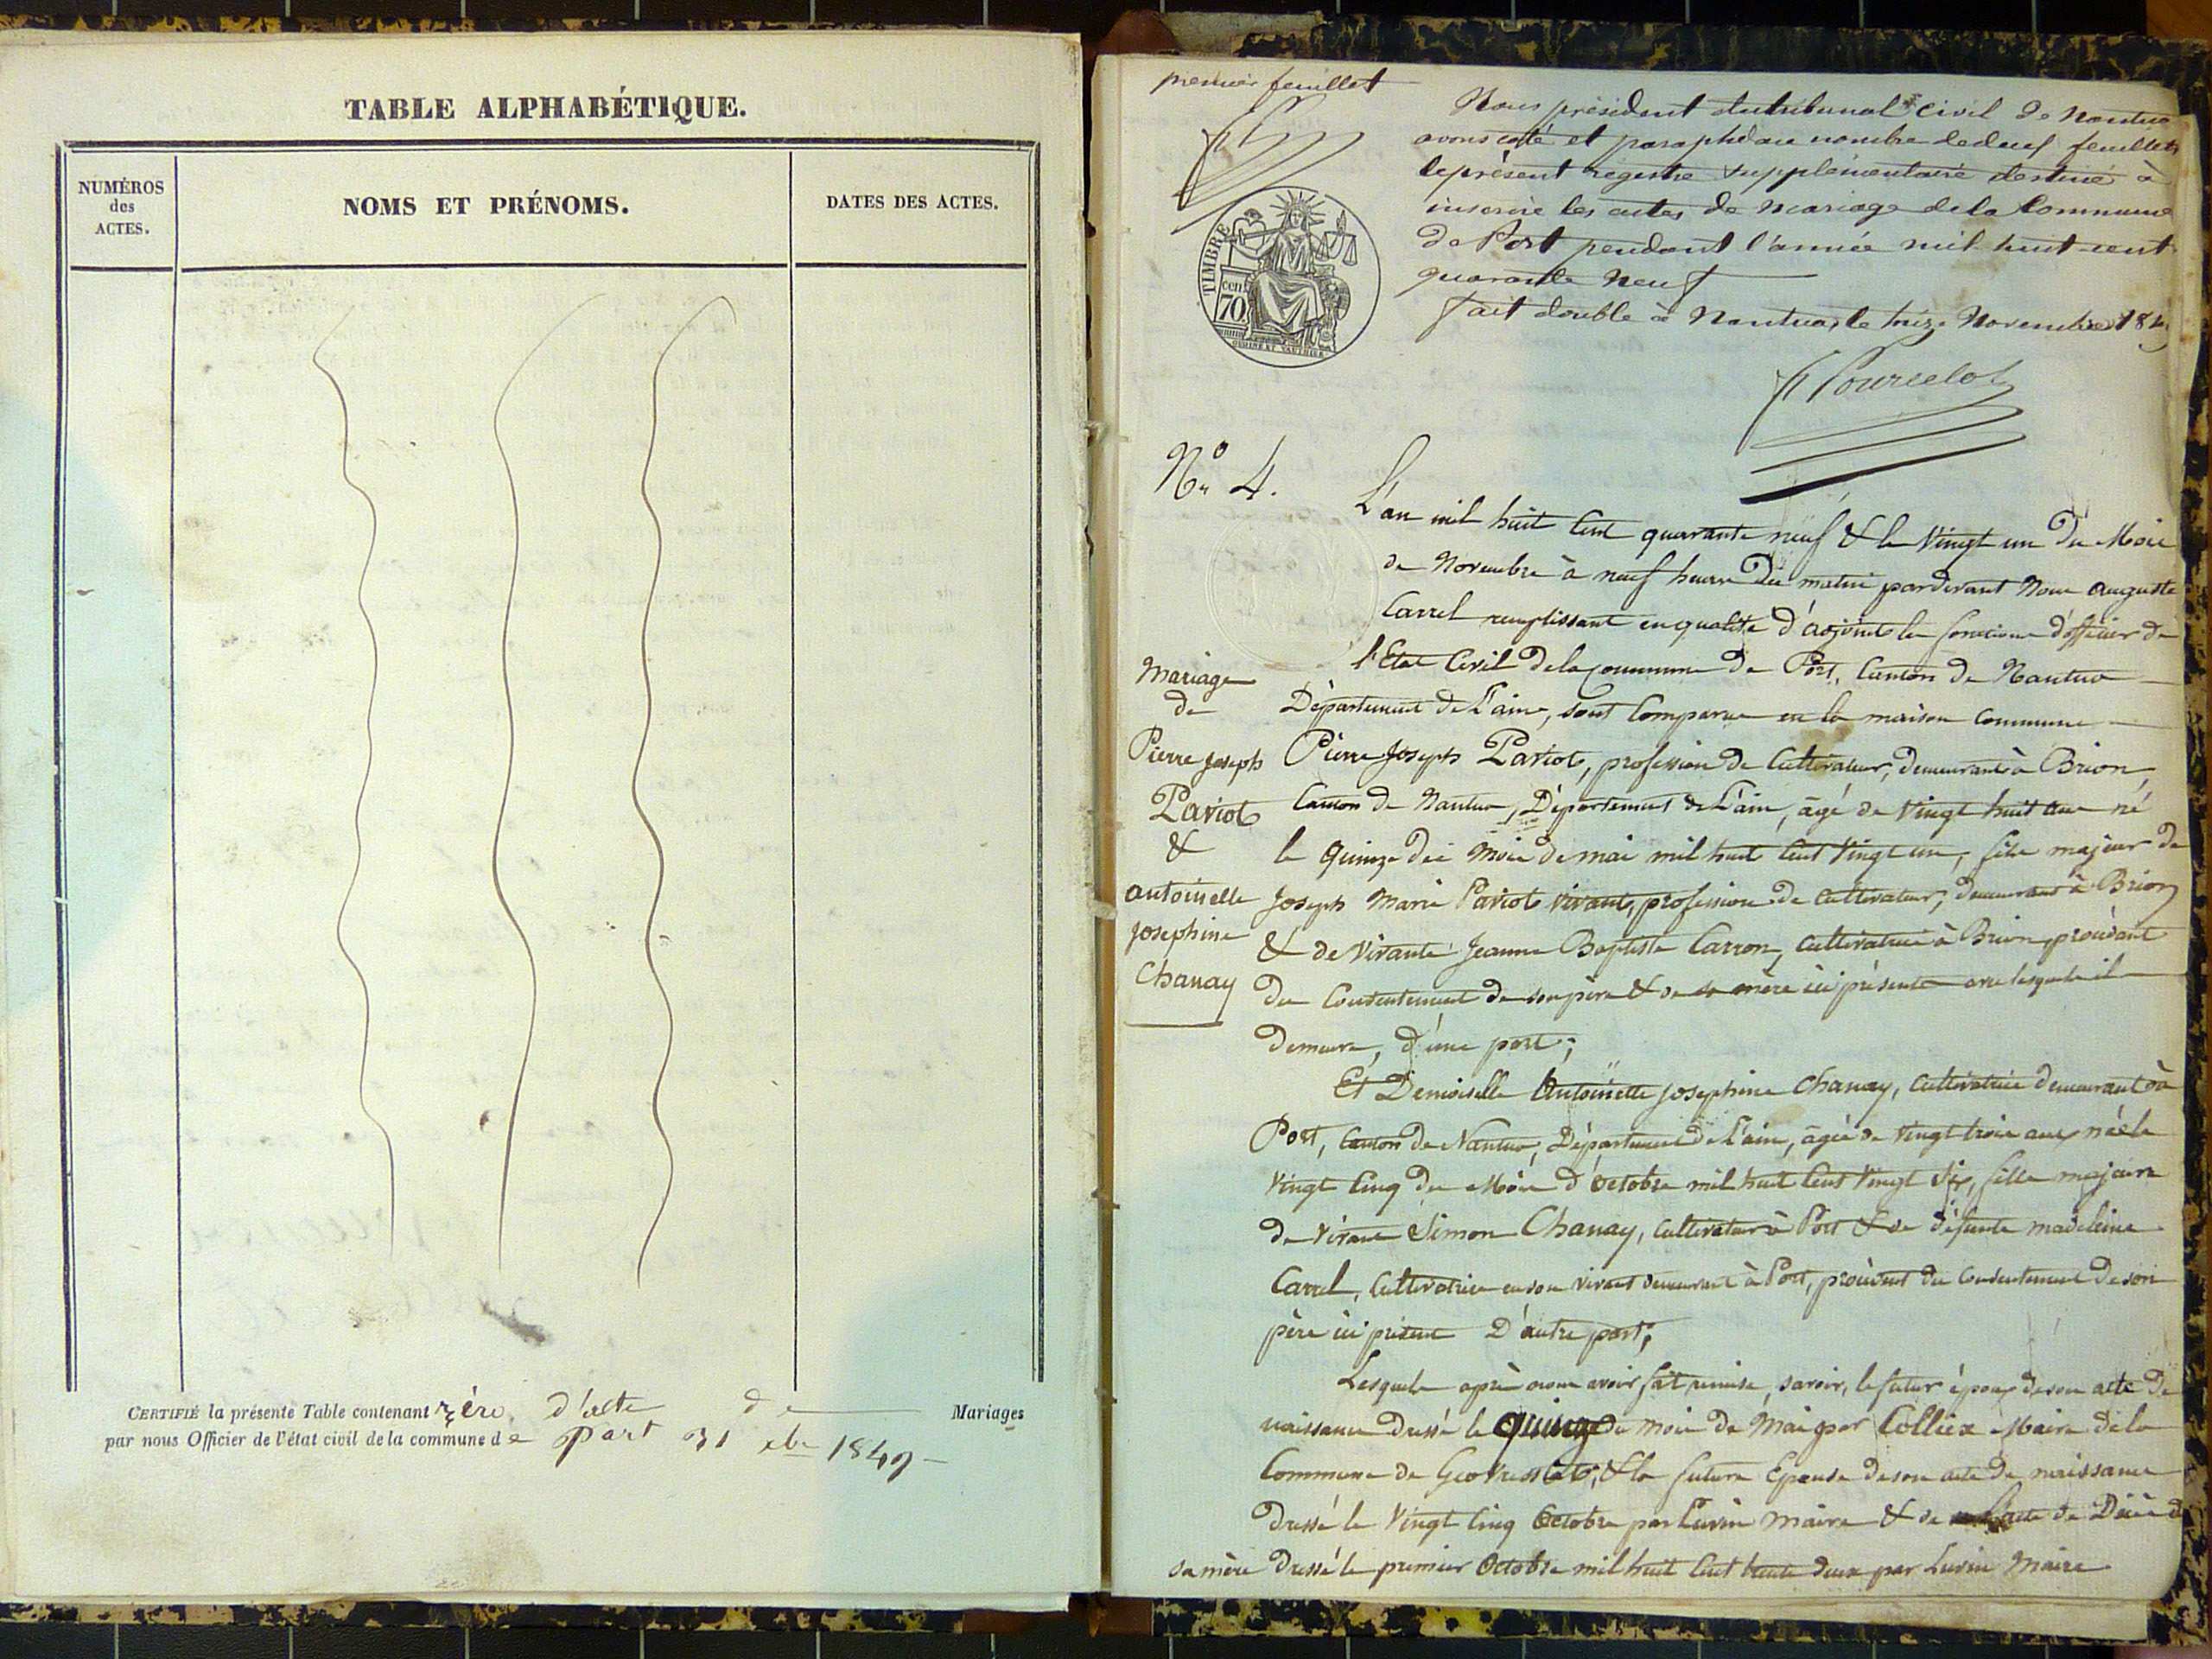 TABLE ALPHABÉTIQUE.
NUMÉROS
des
ACTES.
NOMS ET PRÉNOMS.
DATES DES ACTES.
CERTIFIÉ la présente Table contenant zéro d'acte de Mariages
par nous Officier de l'état civil de la commune de Port 31 xbr 1849
premier feuillet
Nous président du tribunal civil de Nantua
avons coté et paraphé au nombre de deux feuillets
le présent registre supplémentaire destiné à
inscrire les actes de mariage de la Commune
de Port pendant l'année mil huit cent
quarante neuf
fait double à Nantua, le treize Novembre 184
Pourcelot
TIMBRE
cen.
70
No 4.
L'an mil huit Cent quarante neuf & le Vingt un du Mois
de Novembre à neuf heures du matin pardevant Nous Auguste
Carrel remplissant en qualité d'adjoint les fonctions d'officier de
l'Etat Civil de la Commune de Port, Canton de Nantua
Département de L'ain, sont Comparus en la maison Commune
Mariage
de
Pierre Joseph
Pariot
&
antoinette
Josephine
Chanay
Pierre Joseph Pariot, profession de Cultivateur, demeurant à Brion,
Canton de Nantua, Département de L'ain, âgé de Vingt huit ans né
le quinze du Mois de mai mil huit Cent Vingt un, fils majeur de
Joseph Marie Pariot vivant, profession de Cultivateur, demeurant à Brion
& de Vivante Jeanne Baptiste Carron, Cultivatrice à Brion, procédant
du Consentement de son père & de sa mère ici présents avec lesquels il
demeure, d'une part;
Et Demoiselle Antoinette Josephine Chanay, Cultivatrice demeurant à
Port, Canton de Nantua, Département de L'ain, âgée de Vingt trois ans, née le
Vingt Cinq du Mois d'Octobre mil huit Cent Vingt Six, fille majeure
de vivant Simon Chanay, Cultivateur à Port & de défunte madeleine
Carrel, Cultivatrice en son vivant demeurant à Port, procédant du Consentement de son
père ici présent D'autre part;
Lesquels après nous avoir fait remise, savoir, le futur époux de son acte de
naissance dressé le quinze du mois de Mai par Colliex Maire de la
Commune de Geovressiat, & la future Epouse de son acte de naissance
dressé le Vingt Cinq Octobre par Luvin Maire & de l'acte de Décès de
sa mère dressé le premier Octobre mil huit Cent trente deux par Luvin Maire